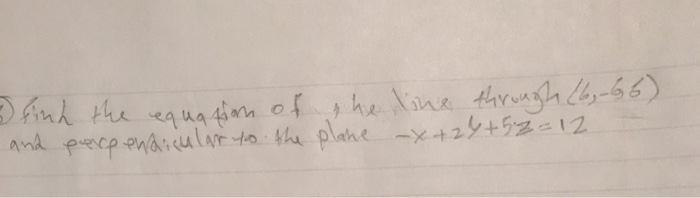 Find the equation of the line through (6,-6 6)
and perpendicular to the plane -x+2y+5z=12